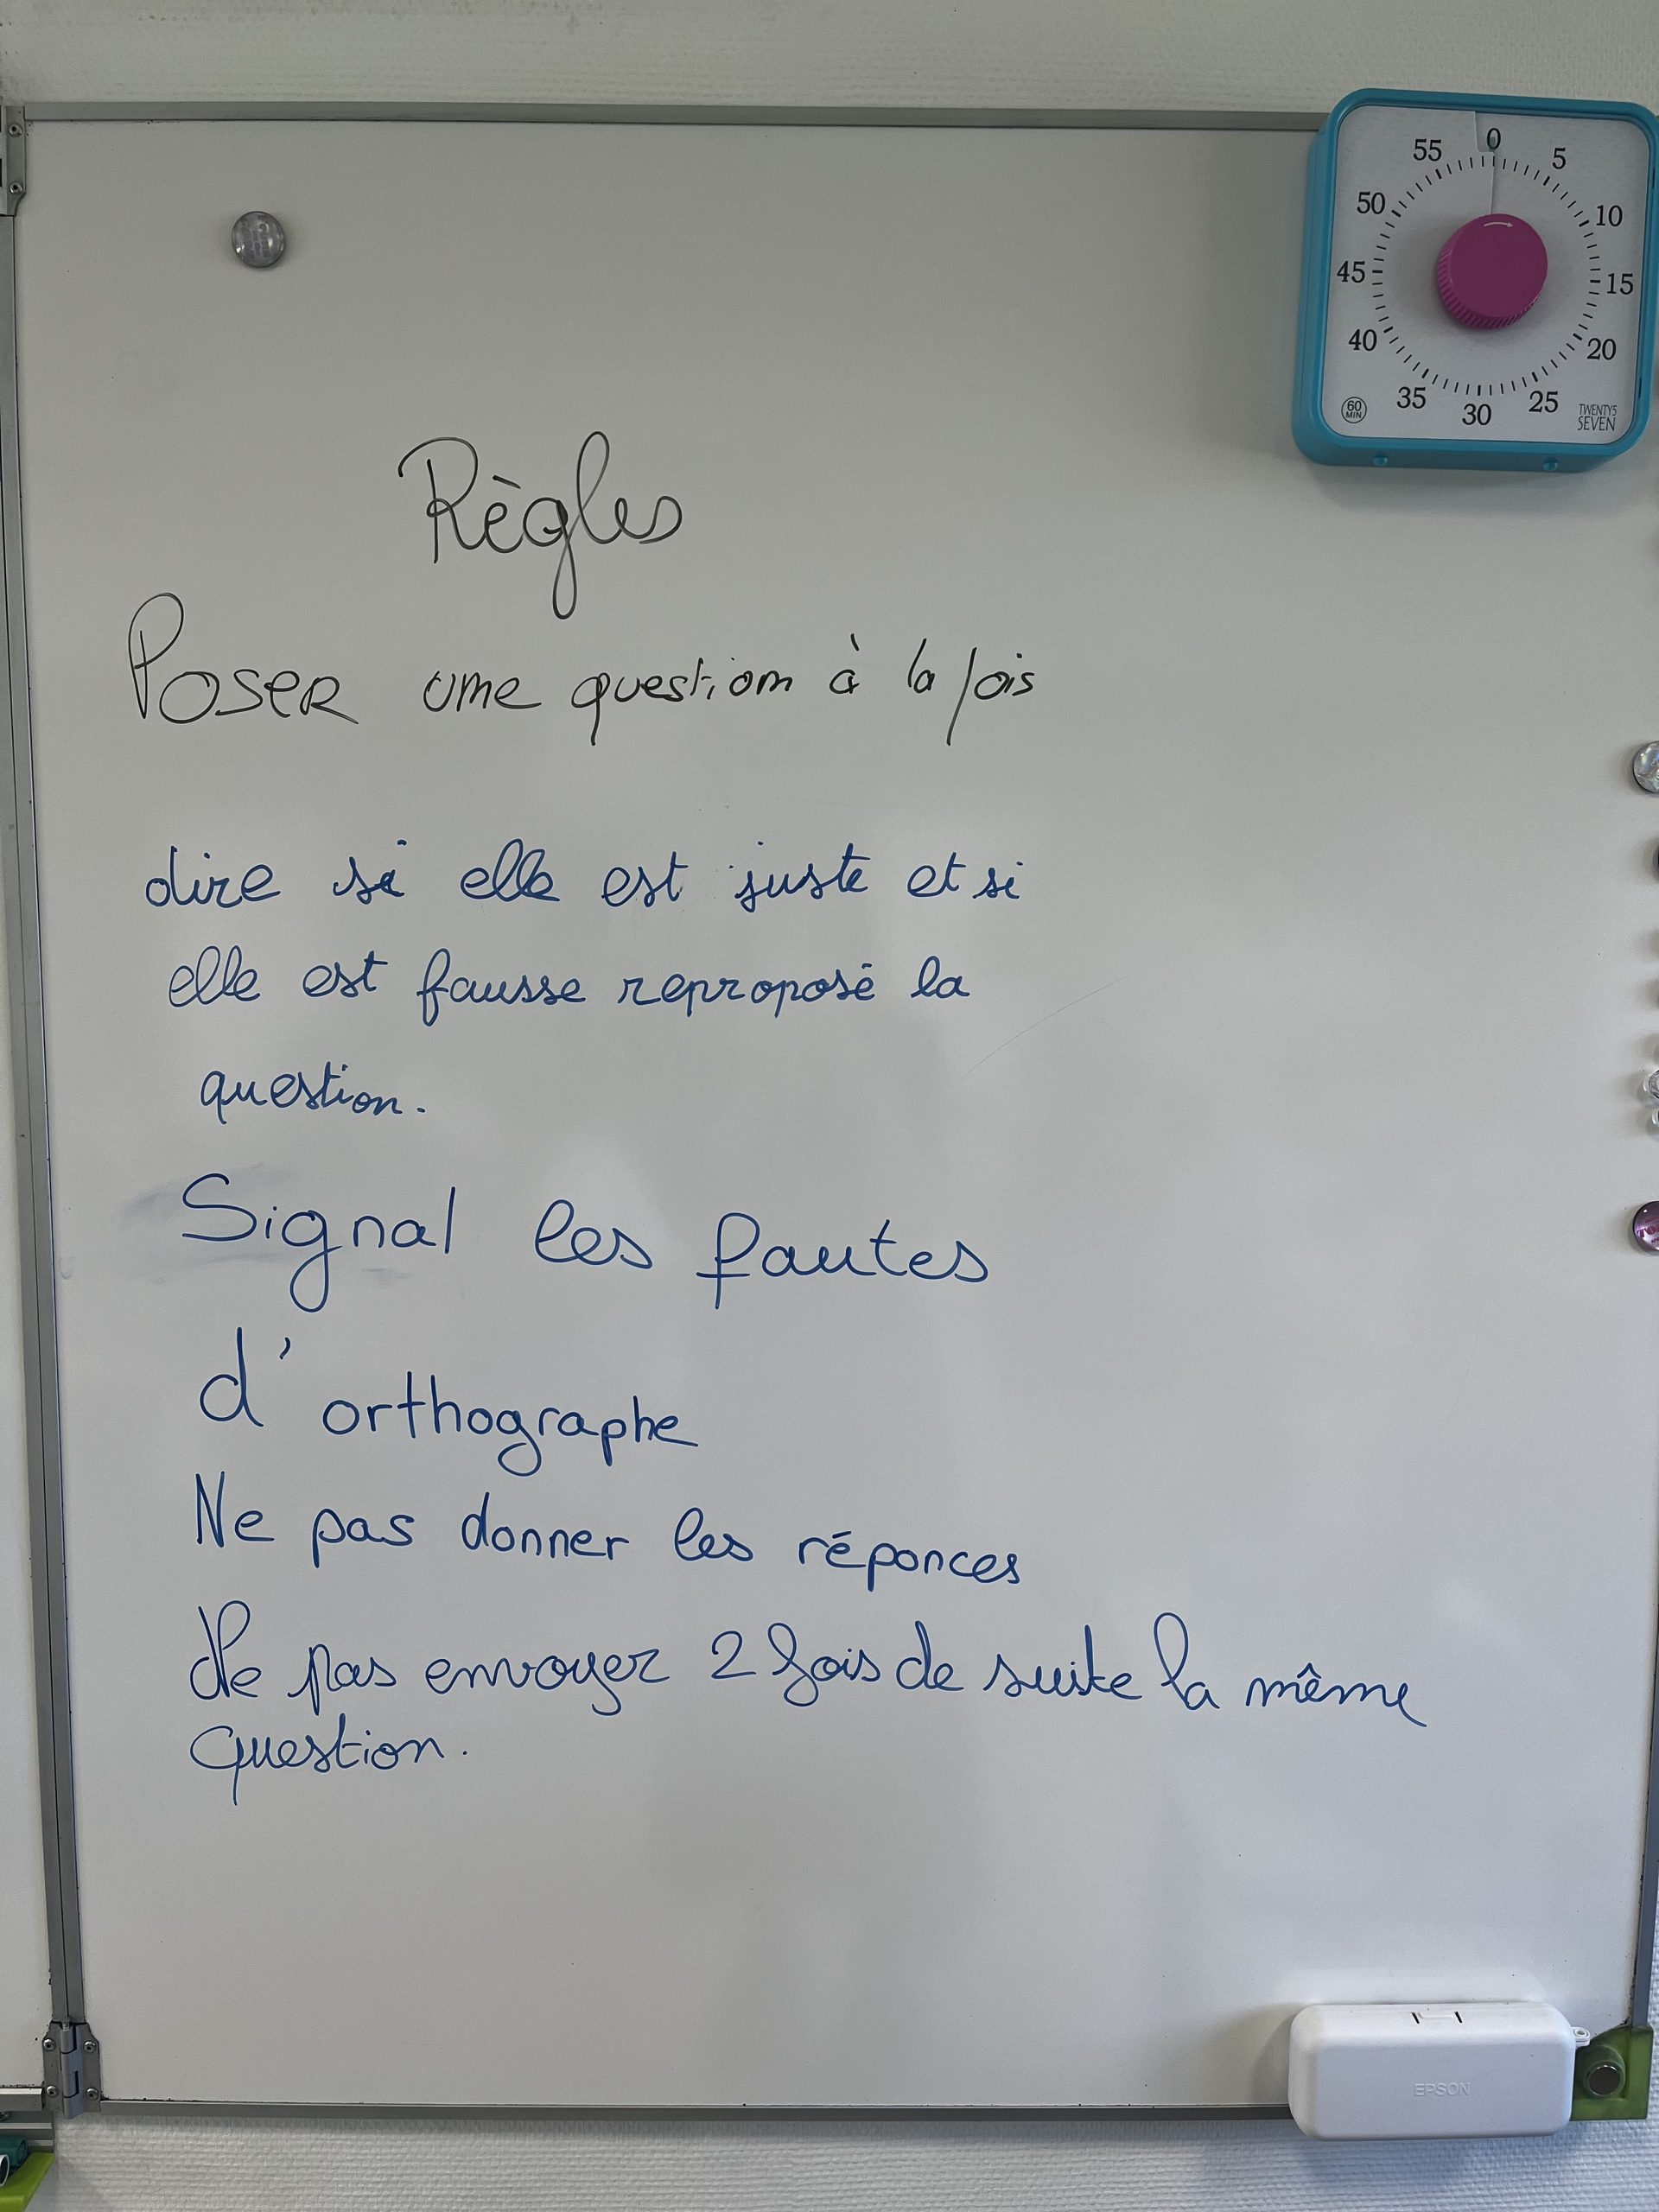 0
5
10
15
20
25
30
35
40
45
50
55
60
MIN
TWENTY5
SEVEN
Règles
Poser une question à la fois
dire si elle est juste et si
elle est fausse reproposé la
question.
Signal les fautes
d'orthographe
Ne pas donner les réponces
Ne pas envoyer 2 fois de suite la même
question.
EPSON